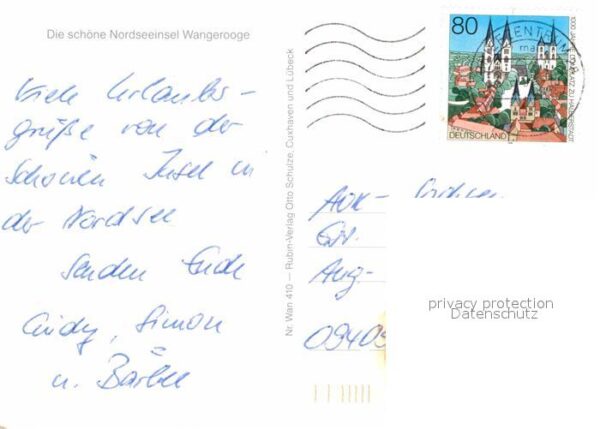 Die schöne Nordseeinsel Wangerooge
Viele Urlaubs-
grüße von der
schönen Insel in
der Nordsee
senden Euch
Cindy, Simon
u. Bärbel
Nr. Wan 410 – Rubin-Verlag Otto Schulze, Cuxhaven und Lübeck
80
1000 JAHRE DOMPLATZ ZU HALBERSTADT
DEUTSCHLAND
BRIEFZENTRUM
AOK-
Aug-
0940
privacy protection
Datenschutz